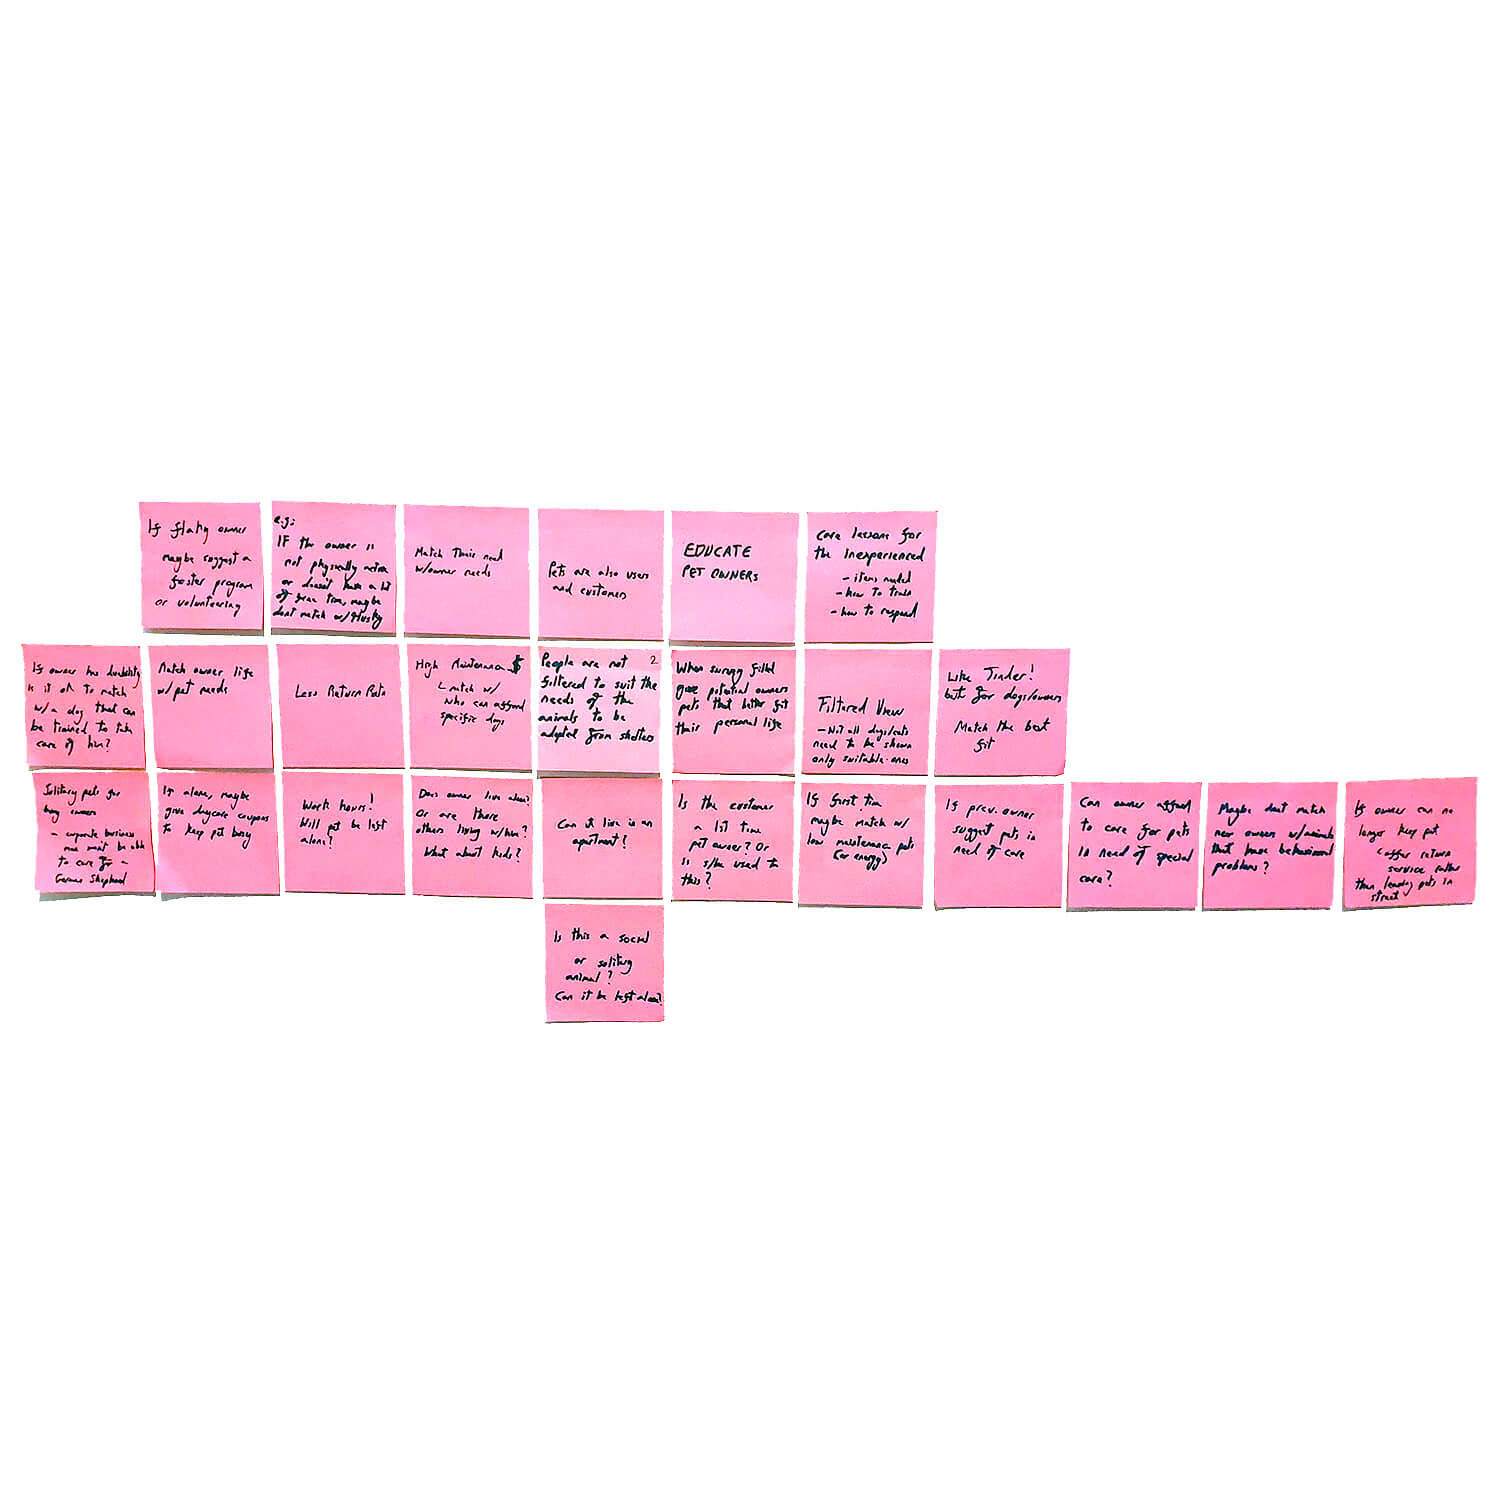 If flaky owner
maybe suggest a
foster program
or volunteering
e.g:
IF the owner is
not physically active
or doesn't have a lot
of free time, maybe
dont match w/ Husky
Match Their need
w/owner needs
Pets are also users
and customers
EDUCATE
PET OWNERS
Care lessons for
the inexperienced
- items needed
- how to train
- how to respond
If owner has disability
is it ok to match
w/a dog that can
be trained to take
care of him?
Match owner life
w/ pet needs
Less Return Pets
High Maintenance $
match w/
who can afford
specific dogs
People are not 2
filtered to suit the
needs of the
animals to be
adopted from shelters
When survey filled
give potential owners
pets that better fit
their personal life
Filtered View
- Not all dogs/cats
need to be shown
only suitable ones
Like Tinder!
but for dogs/owners
Match the best
fit
Solitary pets for
busy owners
- corporate business
man wont be able
to care for a
German Shephard
If alone, maybe
give daycare coupons
to keep pet busy
Work hours!
Will pet be left
alone?
Does owner live alone?
Or are there
others living w/him?
What about kids?
Can it live in an
apartment?
Is the customer
a 1st time
pet owner? Or
is s/he used to
this?
If first time
maybe match w/
low maintenance pets
(or energy)
If prev. owner
suggest pets in
need of care
Can owner afford
to care for pets
in need of special
care?
Maybe dont match
new owners w/animals
that have behavioural
problems?
If owner can no
longer keep pet
offer return
service rather
than leaving pets in
street
Is this a social
or solitary
animal?
Can it be left alone?